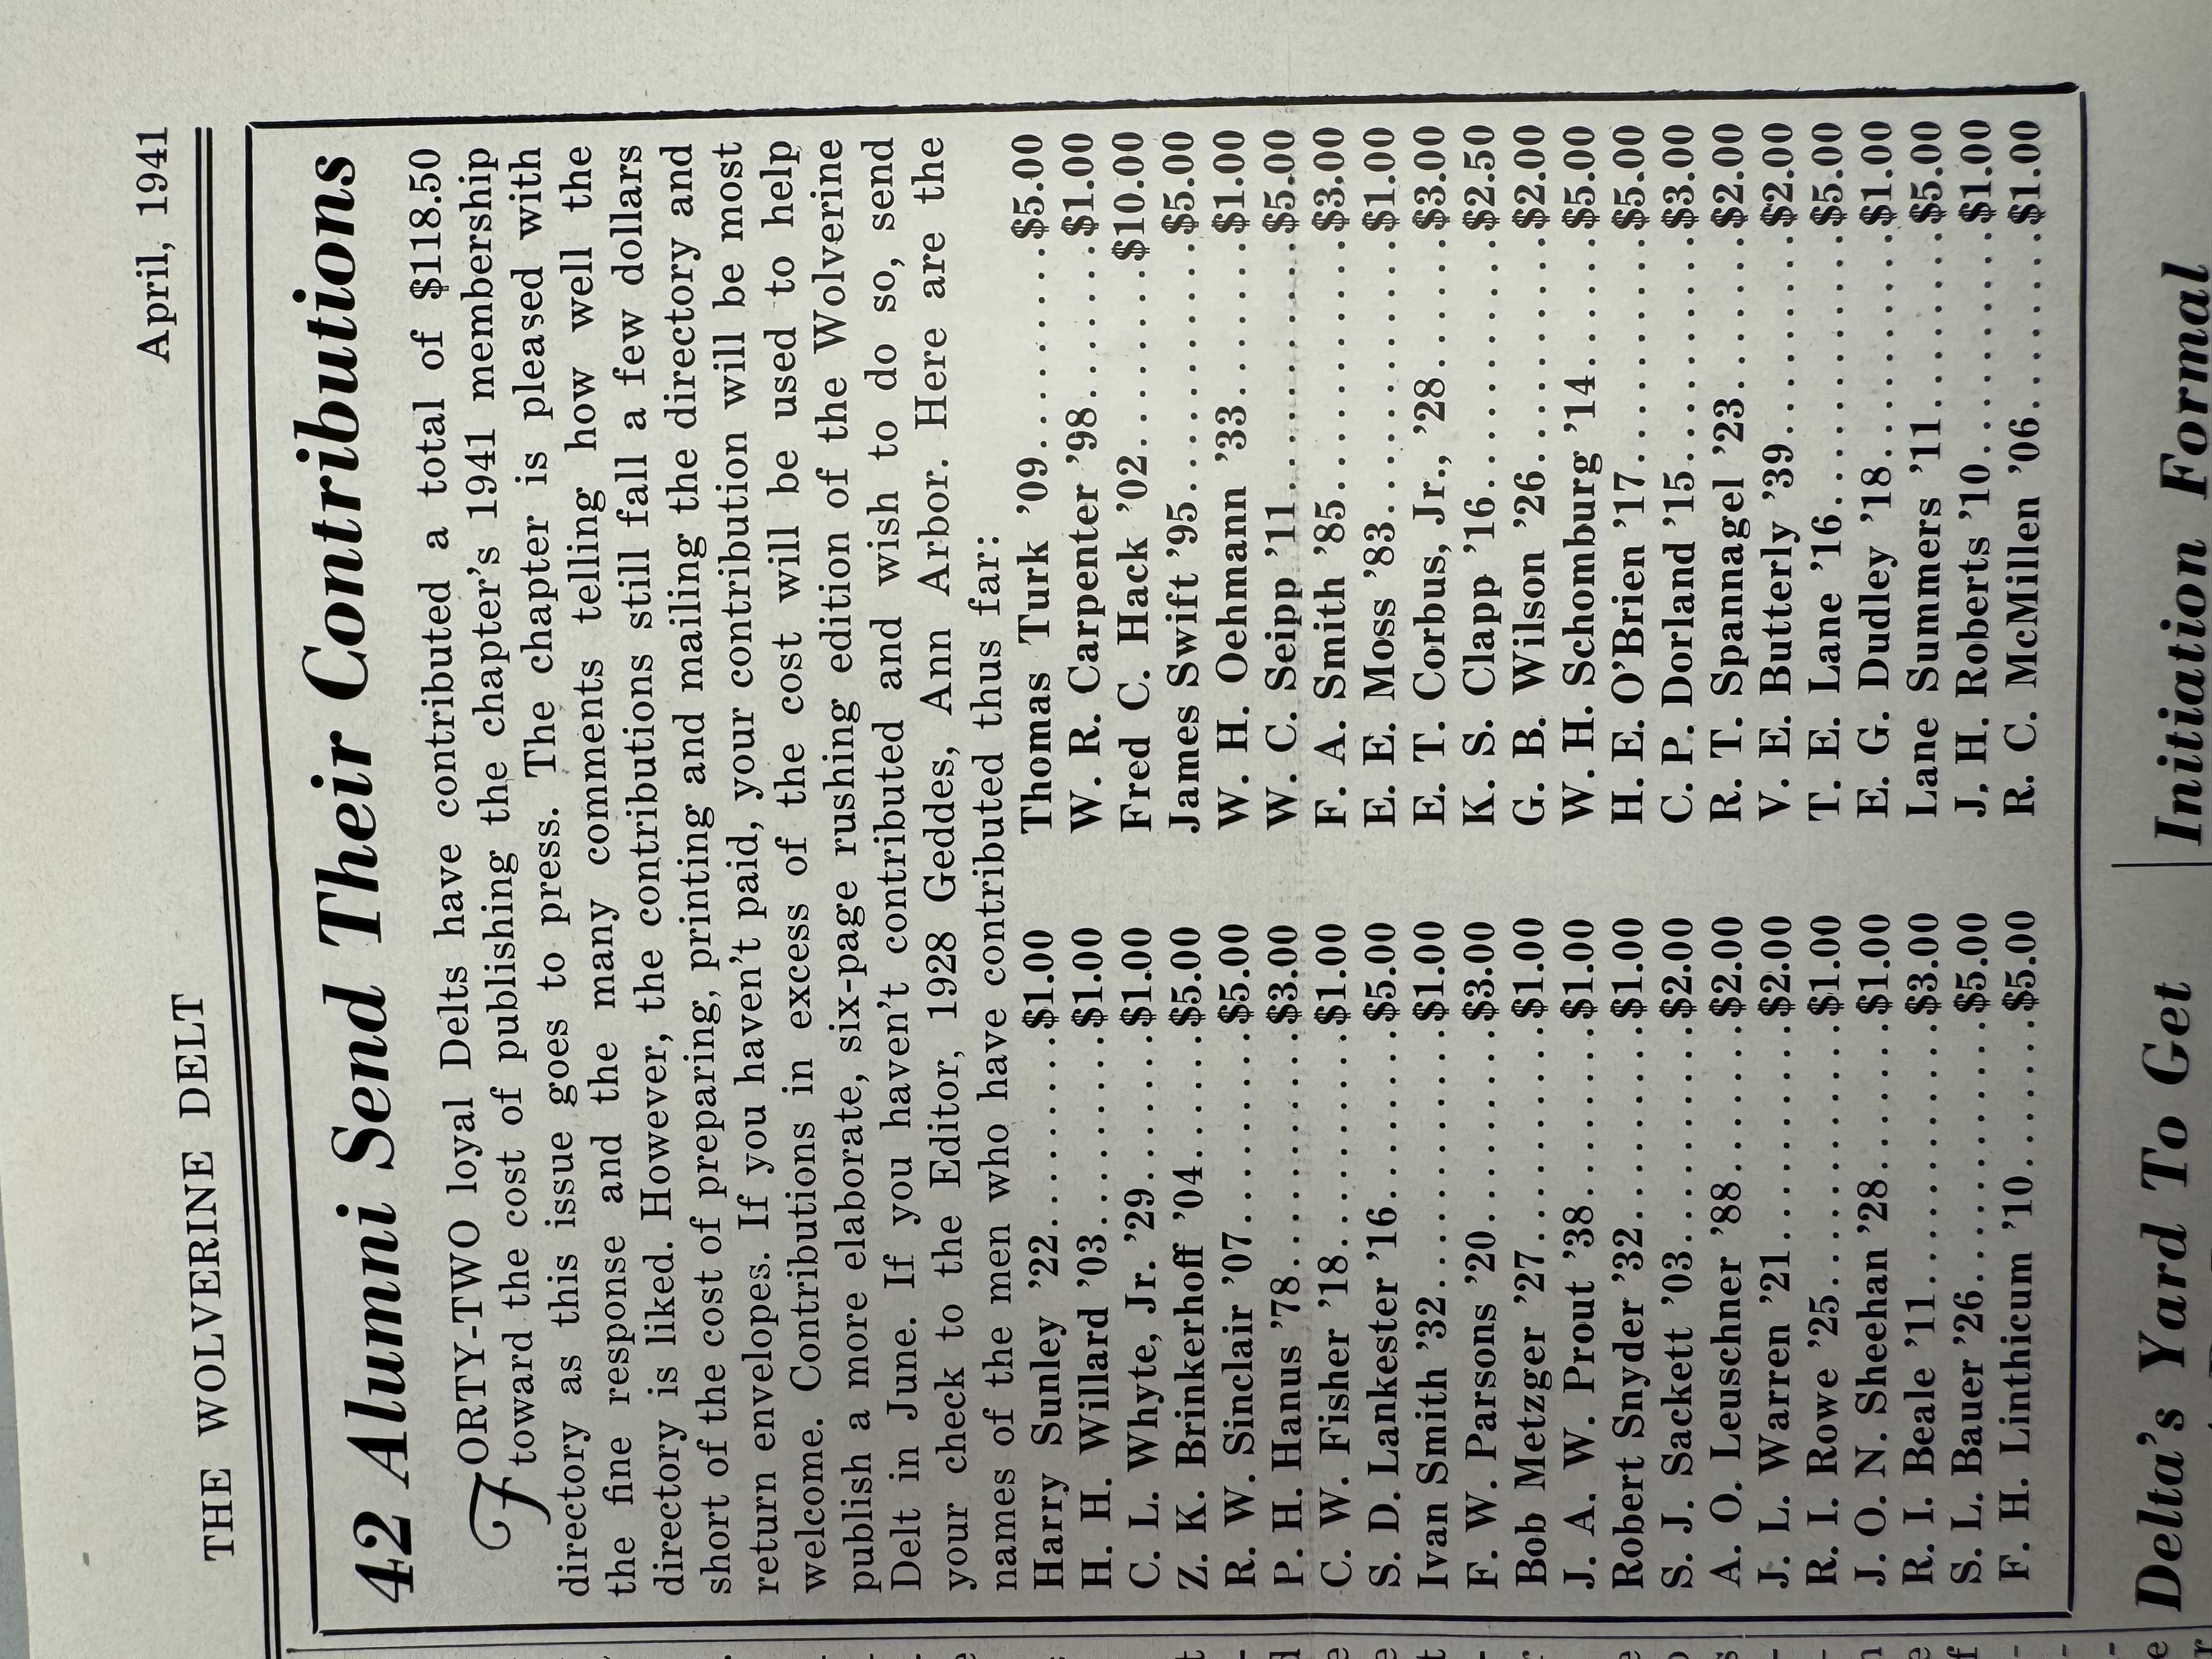 THE WOLVERINE DELT
April, 1941
42 Alumni Send Their Contributions
FORTY-TWO loyal Delts have contributed a total of $118.50
toward the cost of publishing the chapter's 1941 membership
directory as this issue goes to press. The chapter is pleased with
the fine response and the many comments telling how well the
directory is liked. However, the contributions still fall a few dollars
short of the cost of preparing, printing and mailing the directory and
return envelopes. If you haven't paid, your contribution will be most
welcome. Contributions in excess of the cost will be used to help
publish a more elaborate, six-page rushing edition of the Wolverine
Delt in June. If you haven't contributed and wish to do so, send
your check to the Editor, 1928 Geddes, Ann Arbor. Here are the
names of the men who have contributed thus far:
Harry Sunley '22..........$1.00
H. H. Willard '03..........$1.00
C. L. Whyte, Jr. '29........$1.00
Z. K. Brinkerhoff '04.......$5.00
R. W. Sinclair '07..........$5.00
P. H. Hanus '78............$3.00
C. W. Fisher '18............$1.00
S. D. Lankester '16.........$5.00
Ivan Smith '32.............$1.00
F. W. Parsons '20..........$3.00
Bob Metzger '27...........$1.00
J. A. W. Prout '38.........$1.00
Robert Snyder '32.........$1.00
S. J. Sackett '03...........$2.00
A. O. Leuschner '88........$2.00
J. L. Warren '21...........$2.00
R. I. Rowe '25.............$1.00
J. O. N. Sheehan '28........$1.00
R. I. Beale '11.............$3.00
S. L. Bauer '26.............$5.00
F. H. Linthicum '10........$5.00
Thomas Turk '09..........$5.00
W. R. Carpenter '98........$1.00
Fred C. Hack '02.........$10.00
James Swift '95............$5.00
W. H. Oehmann '33........$1.00
W. C. Seipp '11............$5.00
F. A. Smith '85............$3.00
E. E. Moss '83.............$1.00
E. T. Corbus, Jr., '28.......$3.00
K. S. Clapp '16............$2.50
G. B. Wilson '26...........$2.00
W. H. Schomburg '14.......$5.00
H. E. O'Brien '17..........$5.00
C. P. Dorland '15...........$3.00
R. T. Spannagel '23........$2.00
V. E. Butterly '39..........$2.00
T. E. Lane '16.............$5.00
E. G. Dudley '18...........$1.00
Lane Summers '11.........$5.00
J. H. Roberts '10...........$1.00
R. C. McMillen '06.........$1.00
Delta's Yard To Get
Initiation Formal